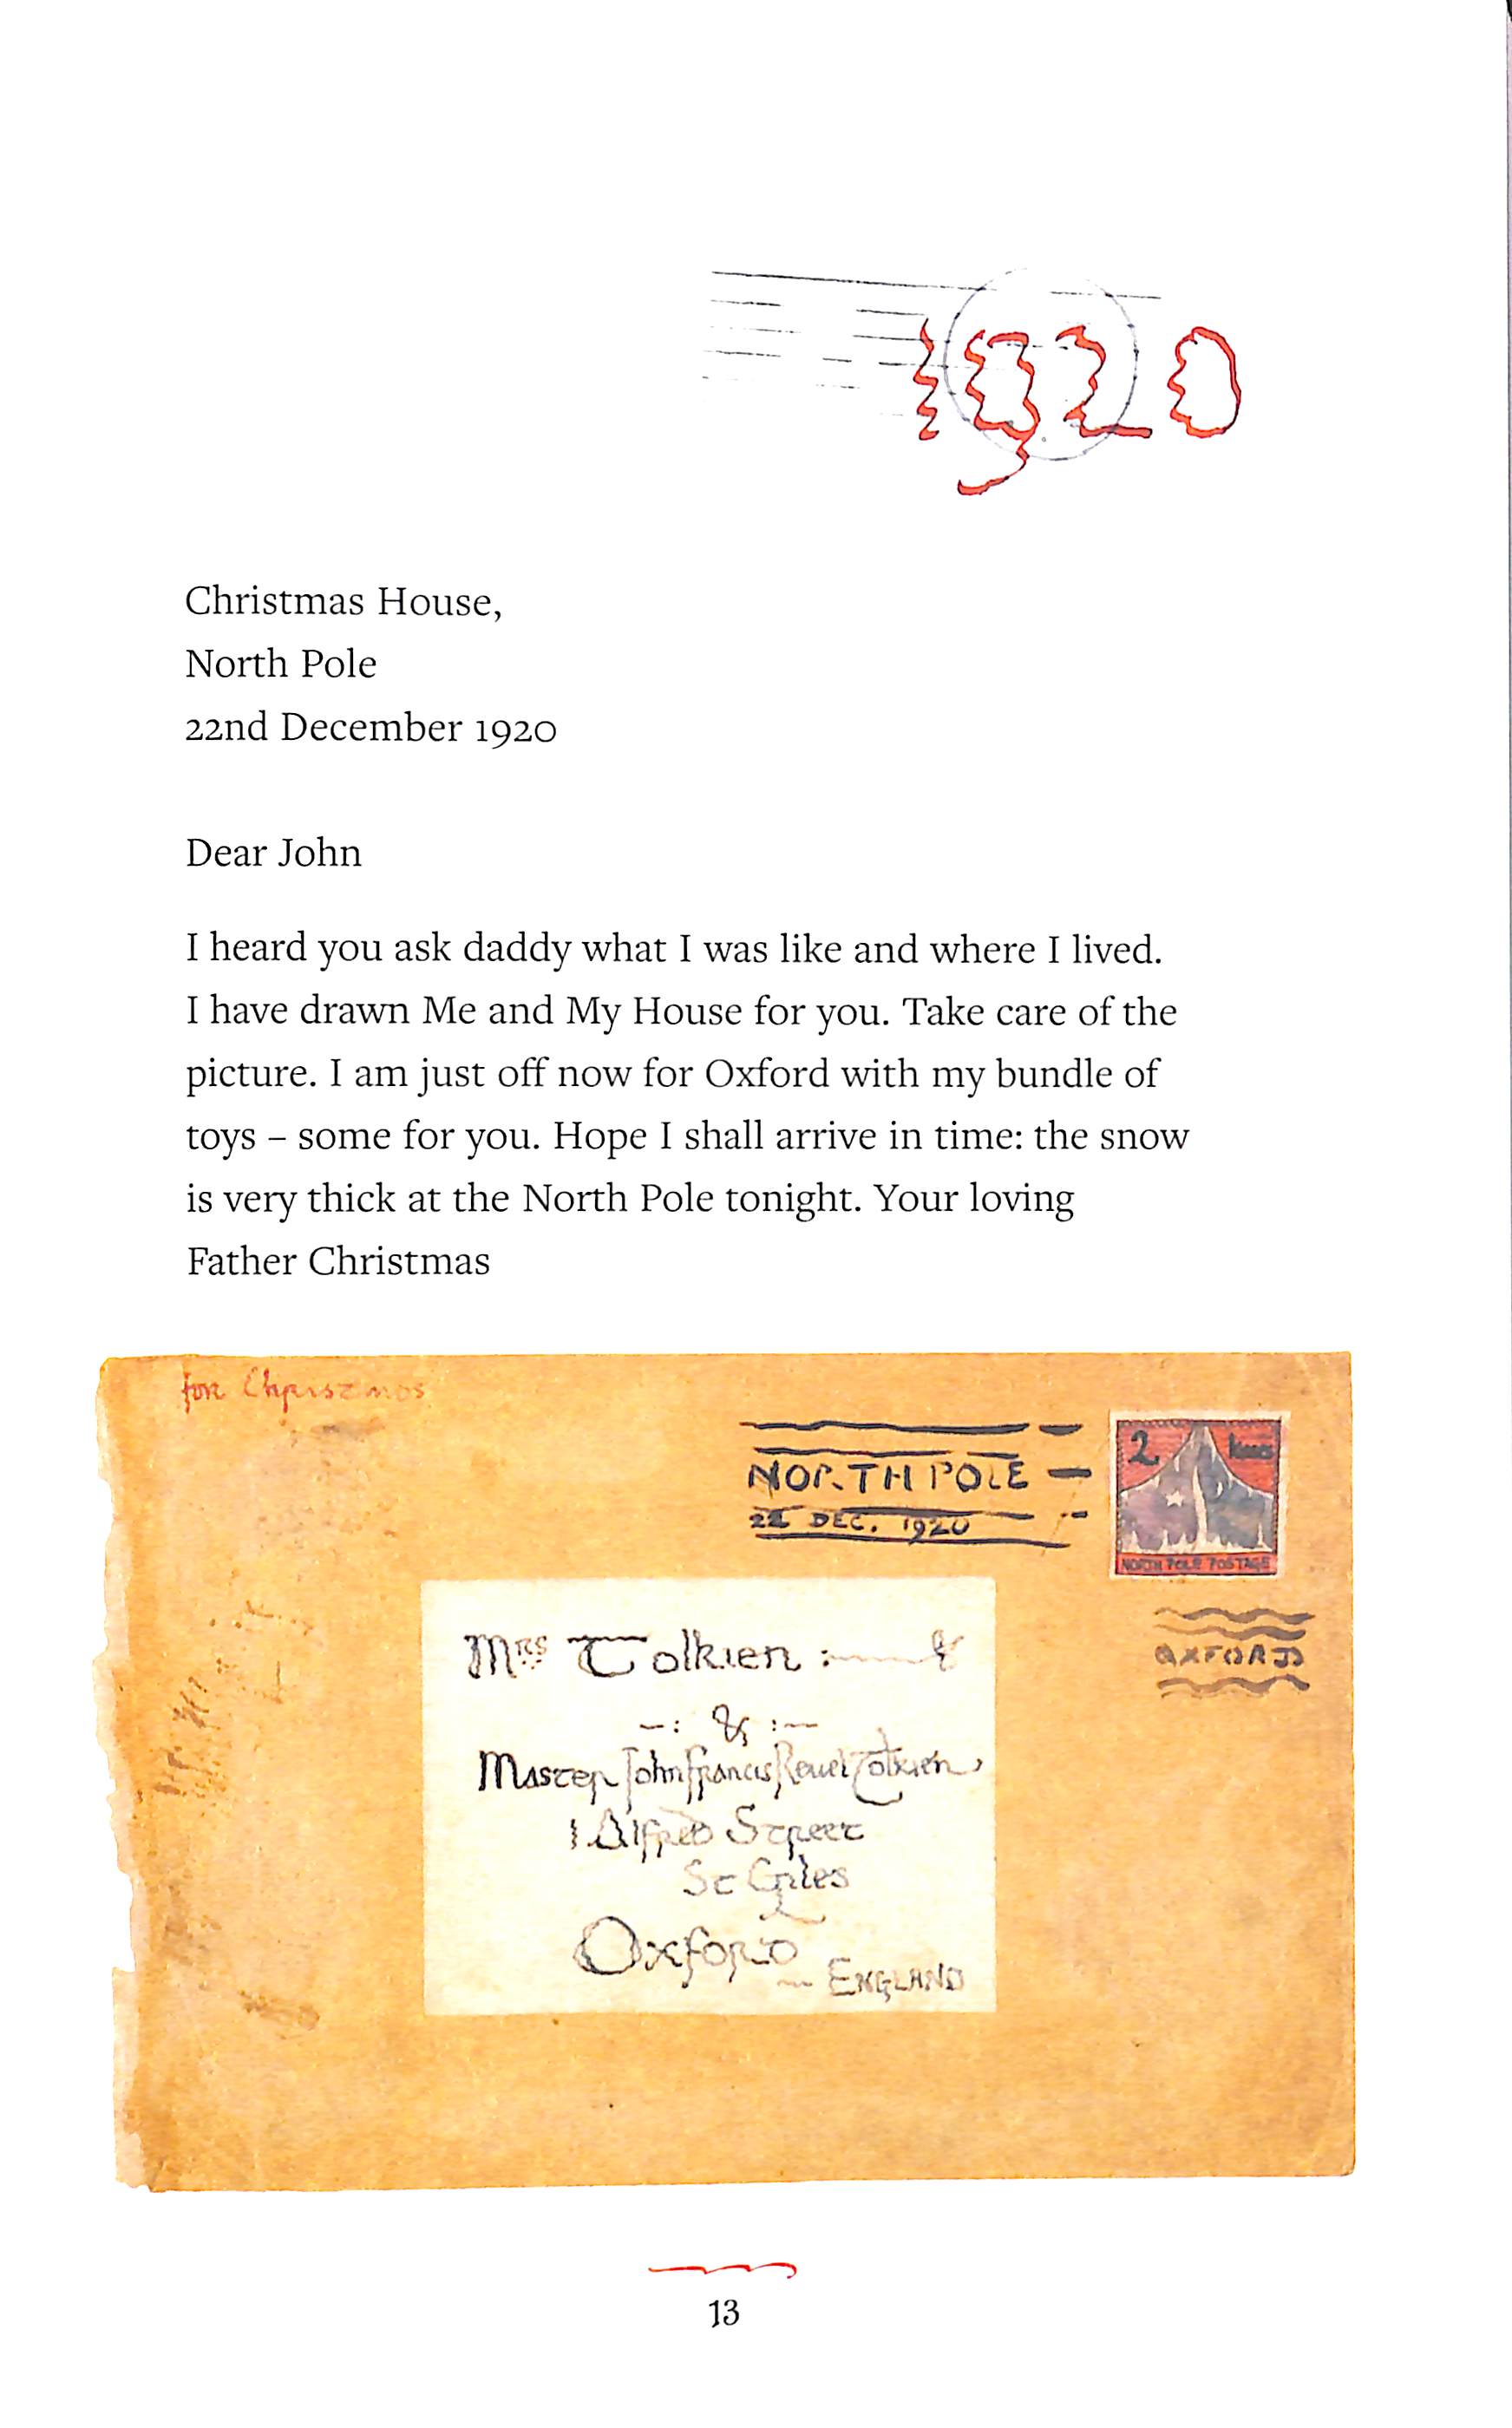 1920
Christmas House,
North Pole
22nd December 1920
Dear John
I heard you ask daddy what I was like and where I lived.
I have drawn Me and My House for you. Take care of the
picture. I am just off now for Oxford with my bundle of
toys – some for you. Hope I shall arrive in time: the snow
is very thick at the North Pole tonight. Your loving
Father Christmas
for Christmas
NORTH POLE
22 DEC. 1920
2
NORTH POLE POSTAGE
OXFORD
Mrs Tolkien :
–: & :–
Master John Francis Reuel Tolkien,
1 Alfred Street
St Giles
Oxford
– ENGLAND
13